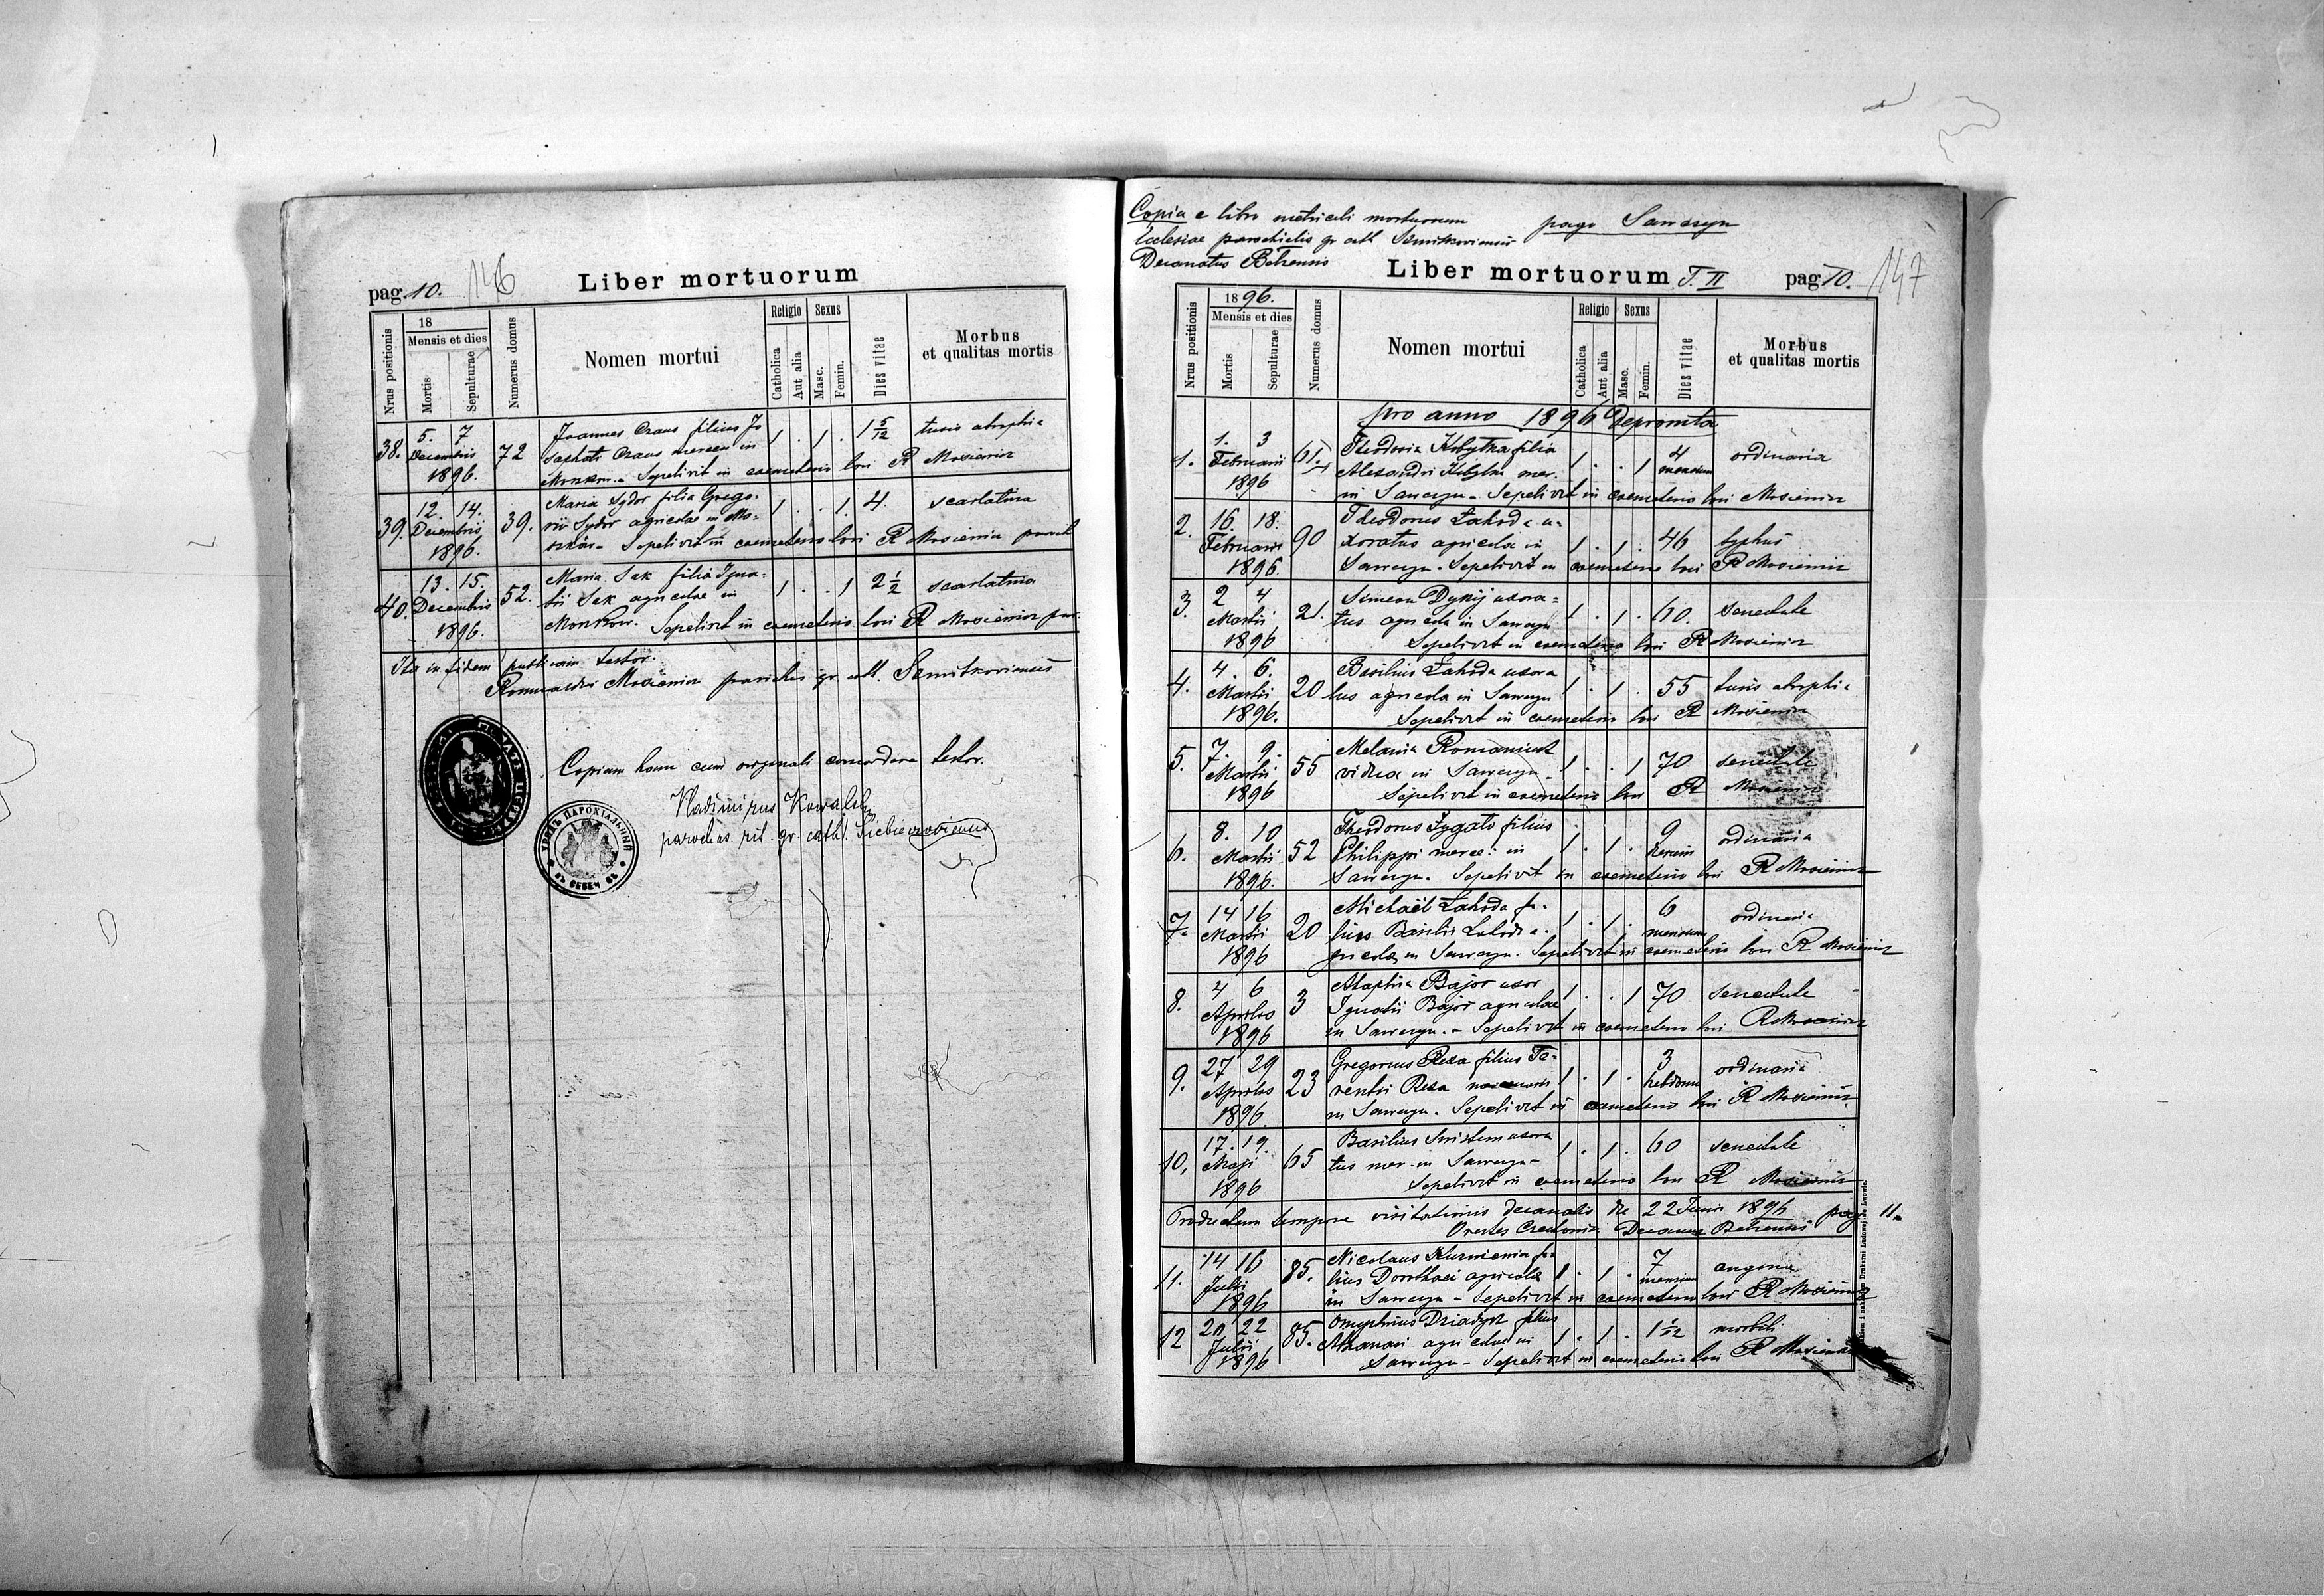 pag. 10. 146
Liber mortuorum
Nrus positionis
18
Mensis et dies
Mortis
Sepulturae
Numerus domus
Nomen mortui
Religio
Catholica
Aut alia
Sexus
Masc.
Femin.
Dies vitae
Morbus
et qualitas mortis
38. 5. 7 Decembris 1896. 72 Joannes Czaus filius Jo 1 . 1 . 1 5/12 tusis atrophia
saphati Czaus mercen in
Sepelivit in coemeterio loci R
39. 12. 14. Decembris 1896. 39. Maria Sydor filia Grego- 1 . . 1. 4. scarlatina
rii Sydor agricolae in Mo-
Sepelivit in coemeterio loci R
40. 13. 15. Decembris 1896. 52. Maria Sak filia Igna- 1 . . 1 2 1/2 scarlatina
tii Sak agricolae in
Sepelivit in coemeterio loci R
Ita in fidem publicam testor.
gr. cath.
Copiam hanc cum originali concordare testor.
Vladimirus Kowalski
parochus rit. gr. cath.
ПАРОХІАЛЬНИЙ
Copia e libro metricali mortuorum pago Sawczyn
Ecclesiae parochialis gr cath
Decanatus Belzensis
Liber mortuorum T. II pag 10. 147
Nrus positionis
1896.
Mensis et dies
Mortis
Sepulturae
Numerus domus
Nomen mortui
Religio
Catholica
Aut alia
Sexus
Masc.
Femin.
Dies vitae
Morbus
et qualitas mortis
pro anno 1896 depromta
1. 1. 3 Februarii 1896 61. Theodosia Kobytka filia 1 . . 1 4 mensium ordinaria
Alexandri mer.
in Sawczyn - Sepelivit in coemeterio loci
2. 16. 18. Februarii 1896. 90 Theodorus Zahoda u- 1 . 1 . 46 typhus
xoratus agricola in
Sawczyn. Sepelivit in coemeterio loci R
3. 2 4 Martii 1896 21. Simeon Dykij uxora- 1 . 1 . 60. senectute
tus agricola in Sawczyn
Sepelivit in coemeterio loci R
4. 4. 6. Martii 1896. 20 Basilius Zahoda uxora 1 . 1 . 55 tusis atrophia
tus agricola in Sawczyn
Sepelivit in coemeterio loci R
5. 7. 9. Martii 1896 55 Melania Romaniuk 1 . . 1 70 senectute
vidua in Sawczyn -
Sepelivit in coemeterio loci R
6. 8. 10 Martii 1896. 52 Theodorus filius 1 . 1 . 9 ordinaria
Philippi merce. in
Sawczyn. Sepelivit in coemeterio loci R
7. 14 16 Martii 1896 20 Michaël Zahoda fi- 1 . 1 . 6 mensium ordinaria
lius Basilii Zahoda a-
gricolae in Sawczyn. Sepelivit in coemeterio loci R
8. 4 6 Aprilis 1896 3 Bajor uxor 1 . . 1 70 senectute
Ignatii Bajor agricolae
in Sawczyn. - Sepelivit in coemeterio loci
9. 27 29 Aprilis 1896. 23 Gregorius Reza filius Te- 1 . 1 . 3 hebdom ordinaria
rentii Reza
in Sawczyn. Sepelivit in coemeterio loci R
10. 17. 19. Maji 1896 65 Basilius uxora 1 . 1 . 60 senectute
tus mer. in Sawczyn -
Sepelivit in coemeterio loci R
Productum tempore visitationis decanalis die 22 Junii 1896 pag 11.
Orestes Decanus Belzensis
11. 14 16 Julii 1896 85. Nicolaus fi- 1 . 1 . 7 mensium angina
lius Dorothaei agricolae
in Sawczyn - Sepelivit in coemeterio loci R
12 20 22 Julii 1896 85. Onuphrius filius 1 . 1 . 1 1/12 morbili
Athanasi agricolae in
Sawczyn - Sepelivit in coemeterio loci R